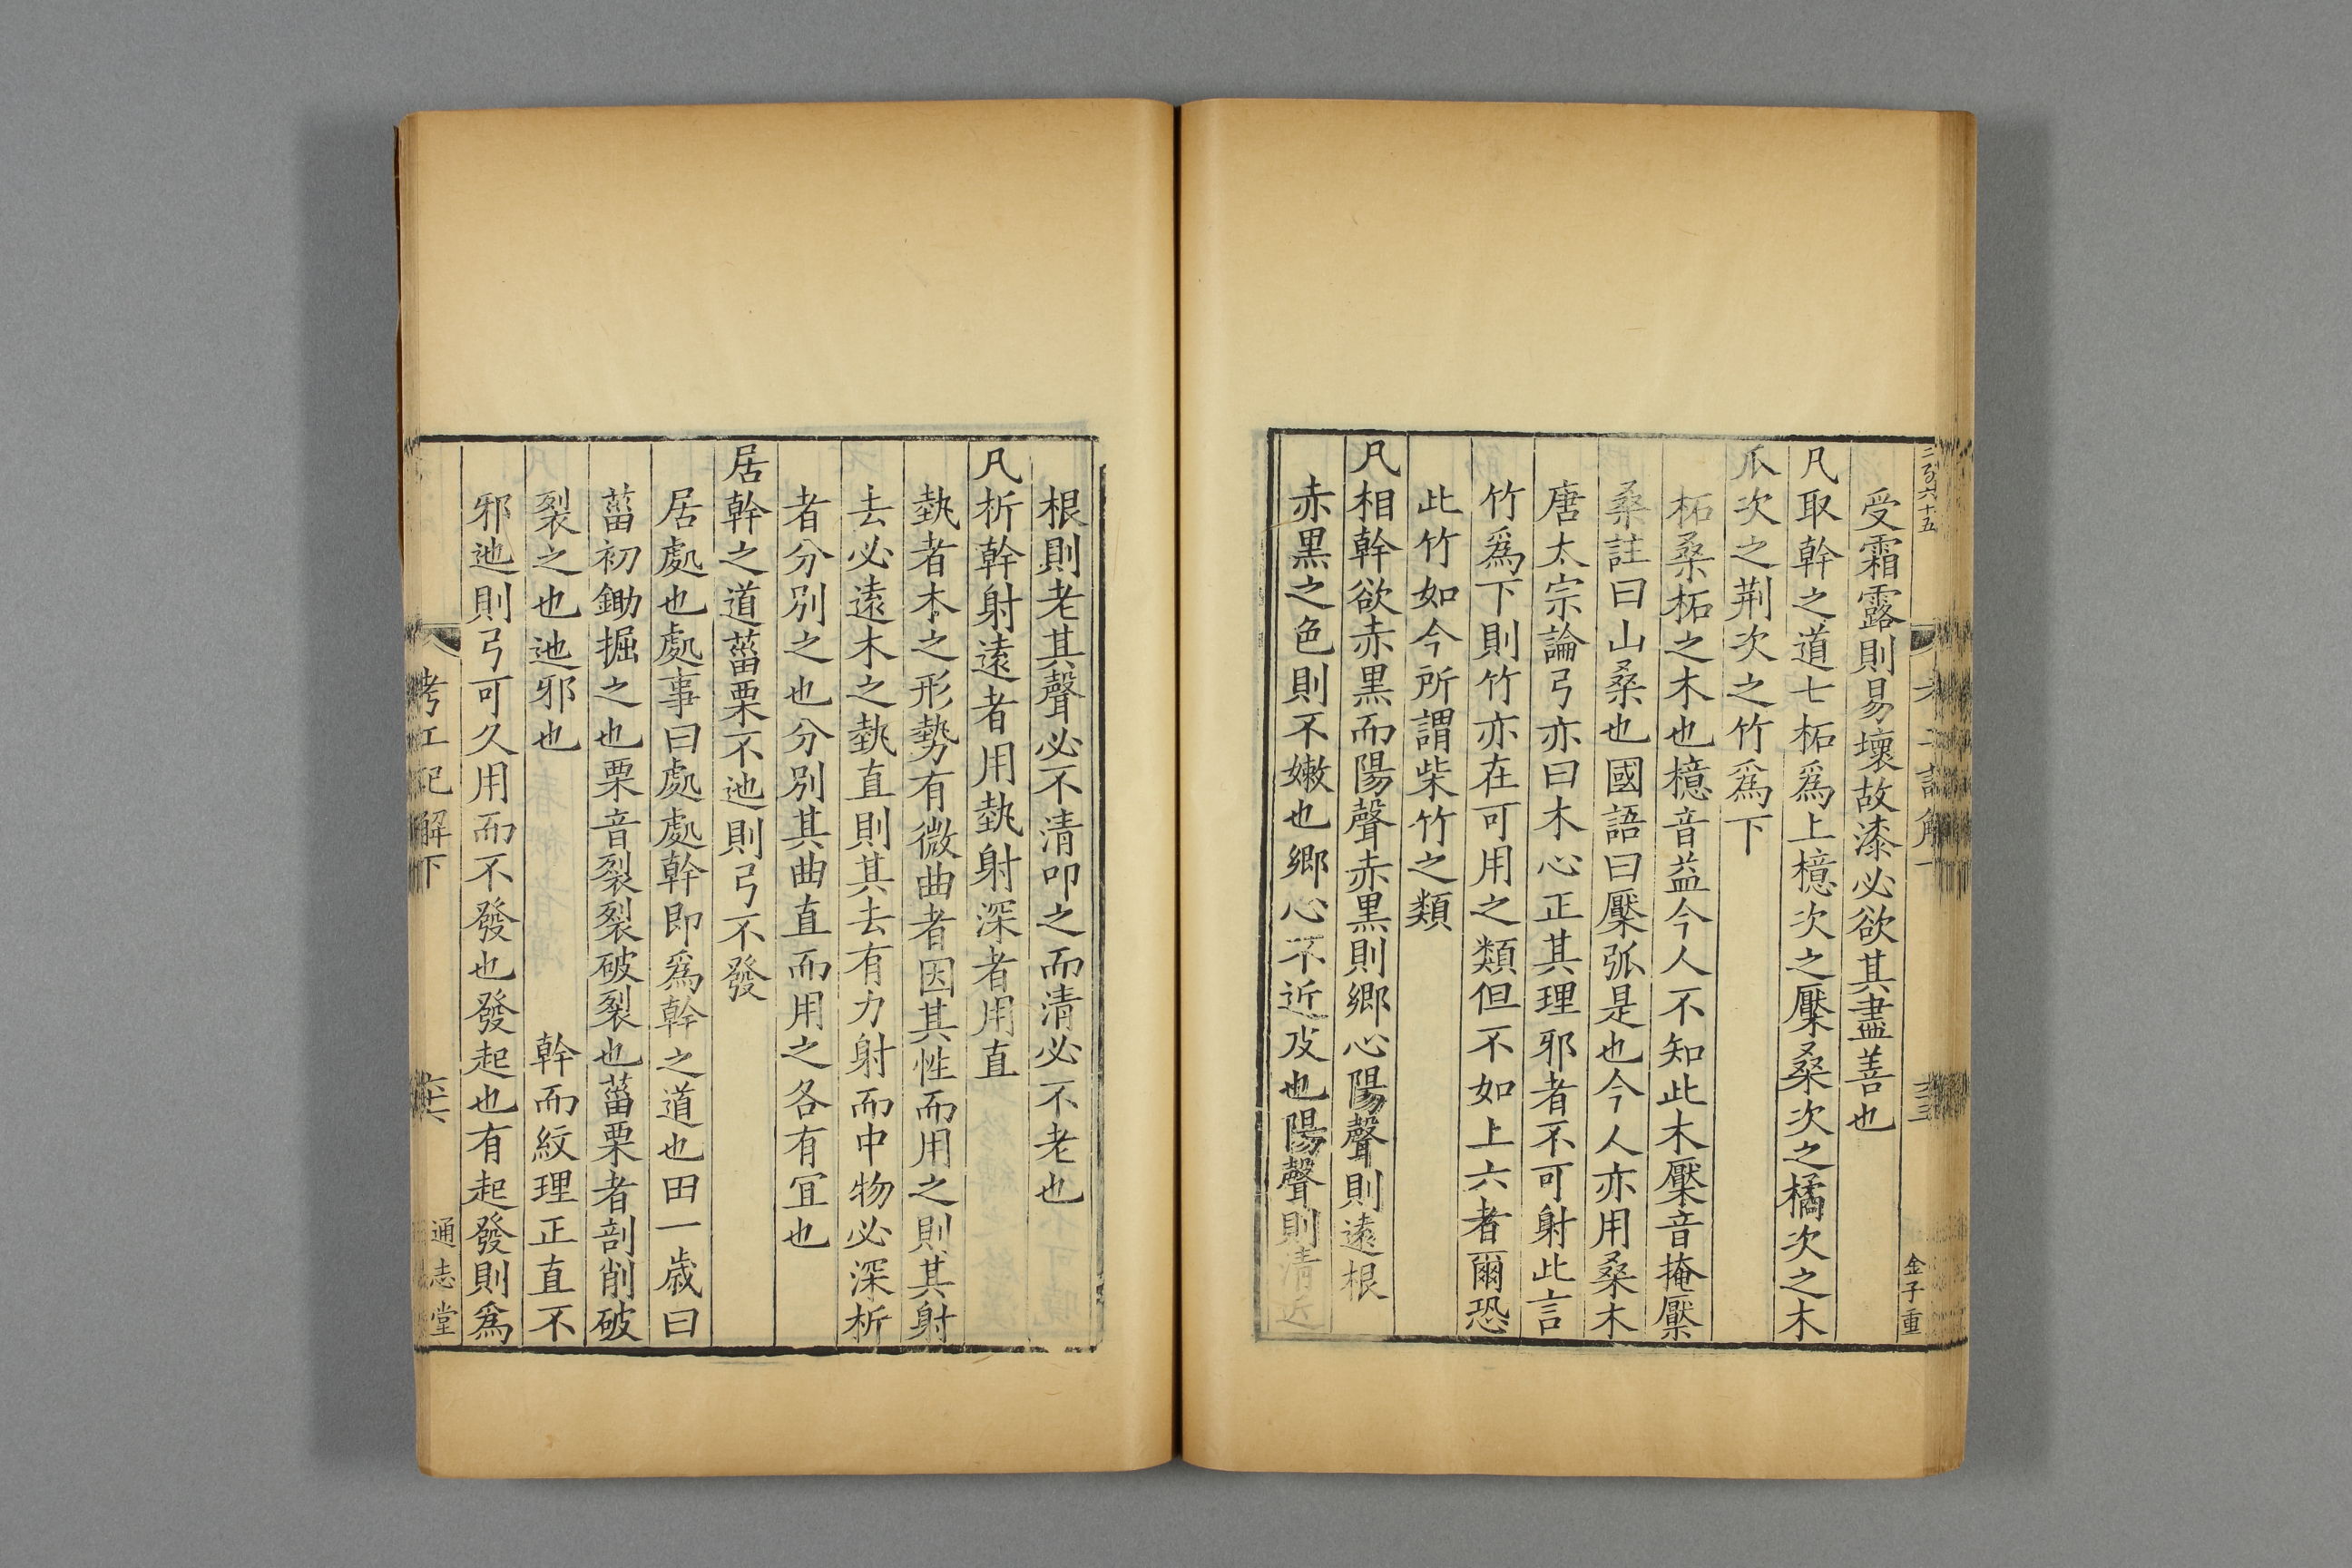 受霜露則易壞故漆必欲其盡善也
凡取幹之道七柘爲上檍次之檿桑次之橘次之木
瓜次之荆次之竹爲下
柘桑柘之木也檍音益今人不知此木檿音掩檿
桑註曰山桑也國語曰檿弧是也今人亦用桑木
唐太宗論弓亦曰木心正其理邪者不可射此言
竹爲下則竹亦在可用之類但不如上六者爾恐
此竹如今所謂柴竹之類
凡相幹欲赤黒而陽聲赤黒則郷心陽聲則遠根
赤黒之色則不嫩也郷心不近皮也陽聲則清近
金子重
根則老其聲必不清叩之而清必不老也
凡析幹射遠者用埶射深者用直
埶者木之形勢有微曲者因其性而用之則其射
去必遠木之埶直則其去有力射而中物必深析
者分別之也分別其曲直而用之各有宜也
居幹之道菑栗不迆則弓不發
居處也處事曰處處幹即爲幹之道也田一歳曰
菑初鋤掘之也栗音裂裂破裂也菑栗者剖削破
裂之也迆邪也 幹而紋理正直不
邪迆則弓可久用而不發也發起也有起發則爲
考工記解下
通志堂